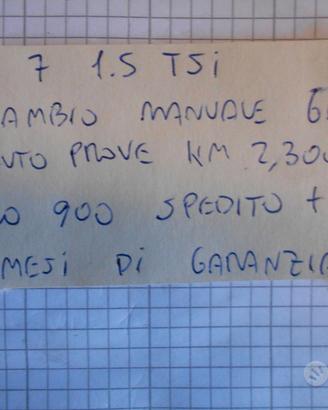 7 1.5 TSi
AMBIO MANUALE 6
UTO PROVE KM 2,300
O 900 SPEDITO +
MESi Di GARANZIA